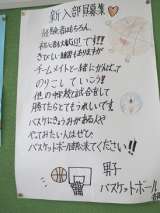 新入部員募集
経験者はもちろん、
初心者も大歓迎です!!!
きびしい練習もありますが
チームメイトと一緒にがんばって
のりこしていこう!!
他の中学校と試合をして
勝てたらとてもうれしいです
バスケにきょうみがある人や
やってみたい人はぜひ
バスケットボール部に来てください!!
男子
バスケットボール部